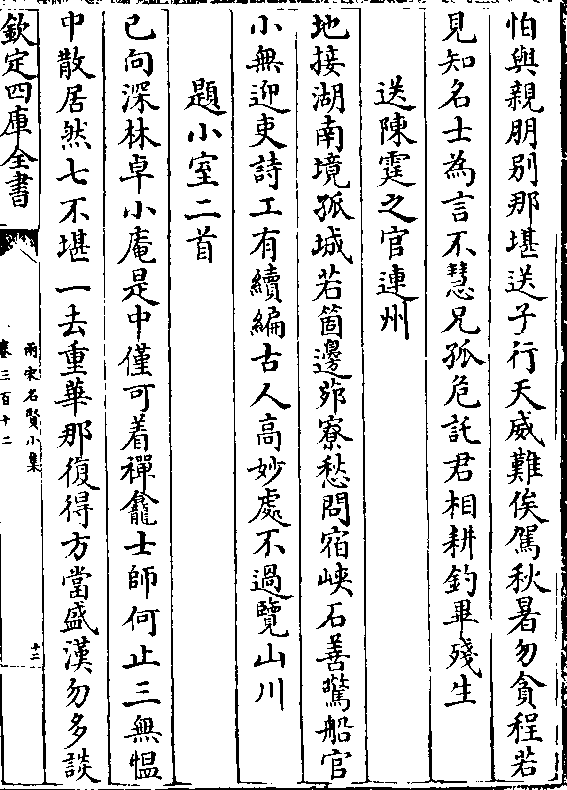 怕與親朋別那堪送子行天威難俟駕秋暑勿貪程若
見知名士為言不慧兄孤危託君相耕釣畢殘生
送陳霆之官連州
地接湖南境孤城若箇邊茆寮愁問宿峽石善驚船官
小無迎吏詩工有續編古人高妙處不過覽山川
題小室二首
已向深林卓小庵是中僅可着禪龕士師何止三無慍
中散居然七不堪一去重華那復得方當盛漢勿多談
欽定四庫全書
兩宋名賢小集
卷三百十二
十二